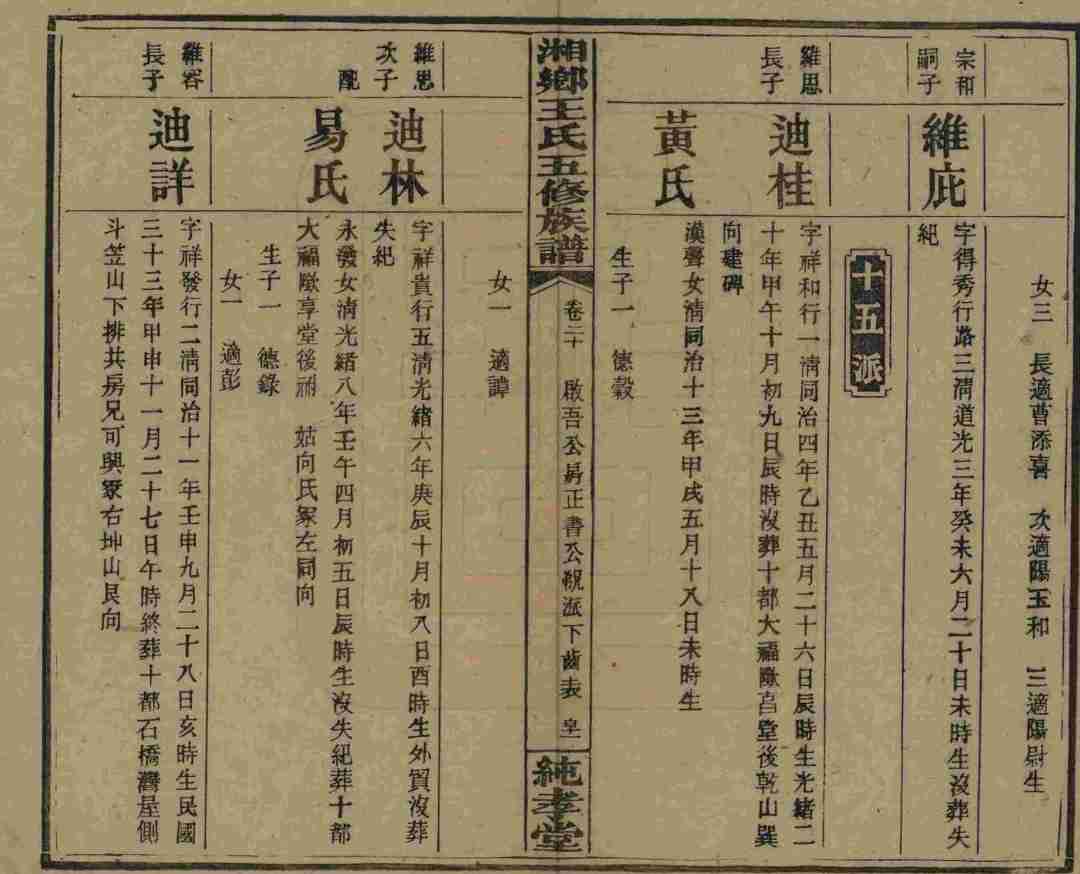 女三 長適曹添喜 次適陽玉和 三適陽尉生
宗和
嗣子
維庇
字得秀行路三淸道光三年癸未六月二十日未時生沒葬失
紀
十五派
維思
長子
迪桂
字祥和行一淸同治四年乙丑五月二十六日辰時生光緒二
十年甲午十月初九日辰時沒葬十都大福歐宫堂後乾山巽
向建碑
黃氏
漢聲女淸同治十三年甲戌五月十八日未時生
生子一 德穀
湘鄉王氏五修族譜
卷二十 啟吾公房正書公派下齒表
純孝堂
女一 適譚
維思
次子
迪林
字祥貴行五淸光緒六年庚辰十月初八日酉時生外貿沒葬
失紀
配
易氏
永發女淸光緒八年壬午四月初五日辰時生沒失紀葬十都
大福歐享堂後祔 姑向氏冢左同向
生子一 德錄
女一 適彭
維容
長子
迪詳
字祥發行二淸同治十一年壬申九月二十八日亥時生民國
三十三年甲申十一月二十七日午時終葬十都石橋灣屋側
斗笠山下排共房兄可興冢右坤山艮向